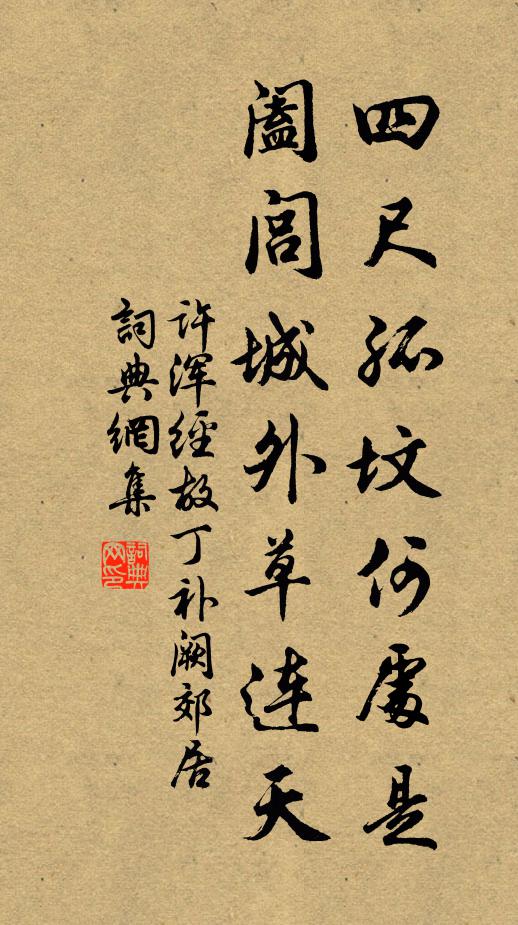 四尺孤坟何處是
阖闾城外草連天
许浑經故丁补阙郊居
詞典網集
詞典
网印